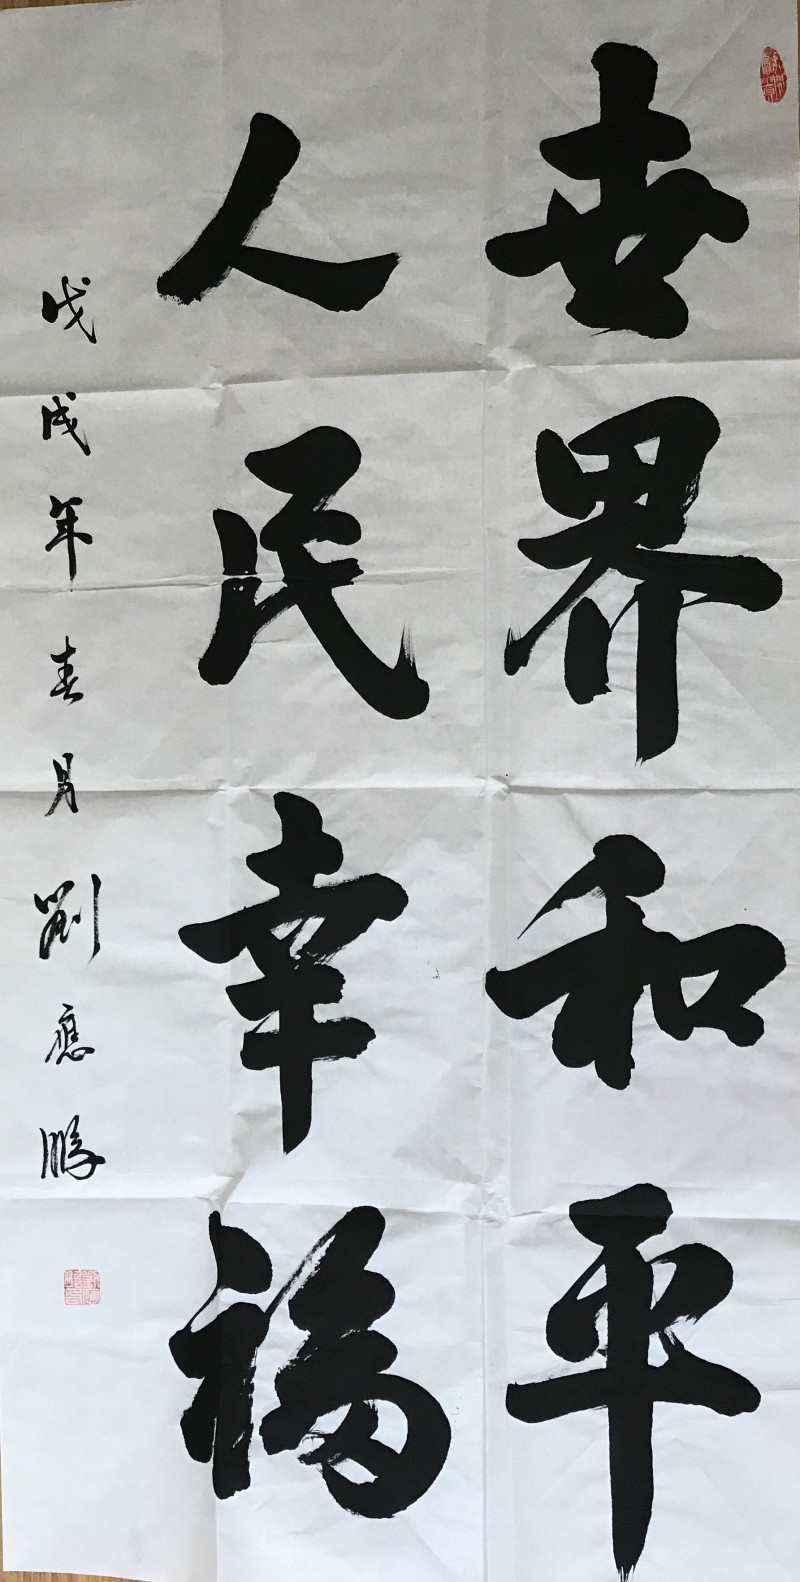 世界和平
人民幸福
戊戌年春月劉應勝